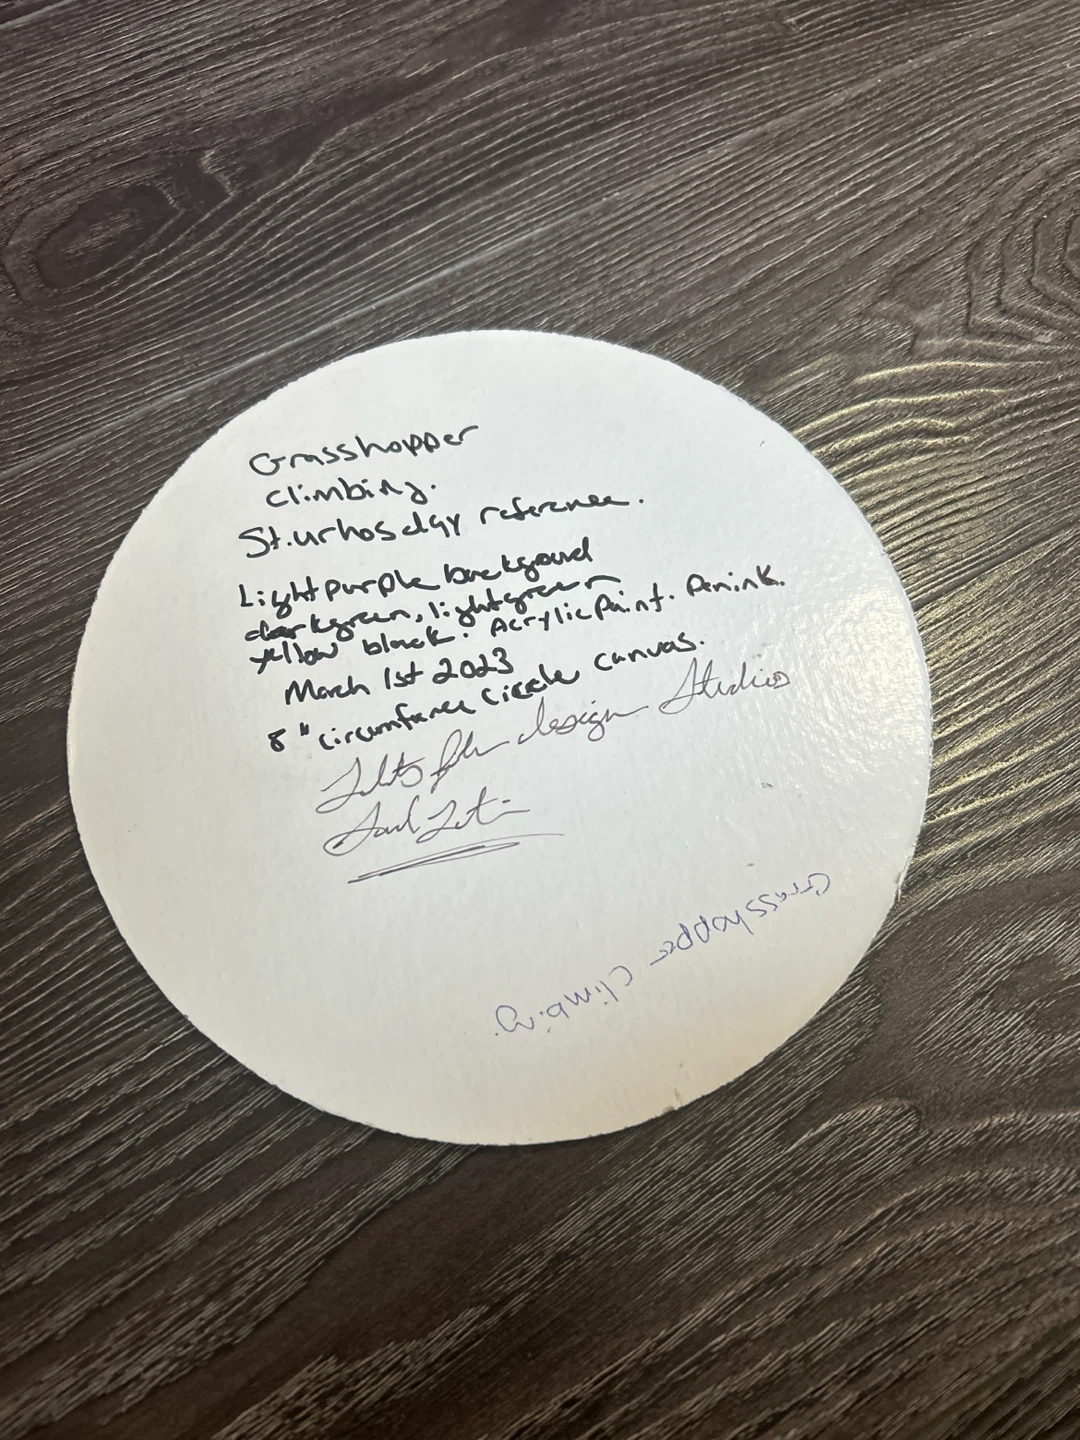 Grasshopper
climbing.
St.urhos day reference.
Light purple backgound
dark green, light green
yellow black. Acrylic Paint. Pen ink.
March 1st 2023
8" circumfrance circle canvas.
design Studios
Grasshopper climbing.